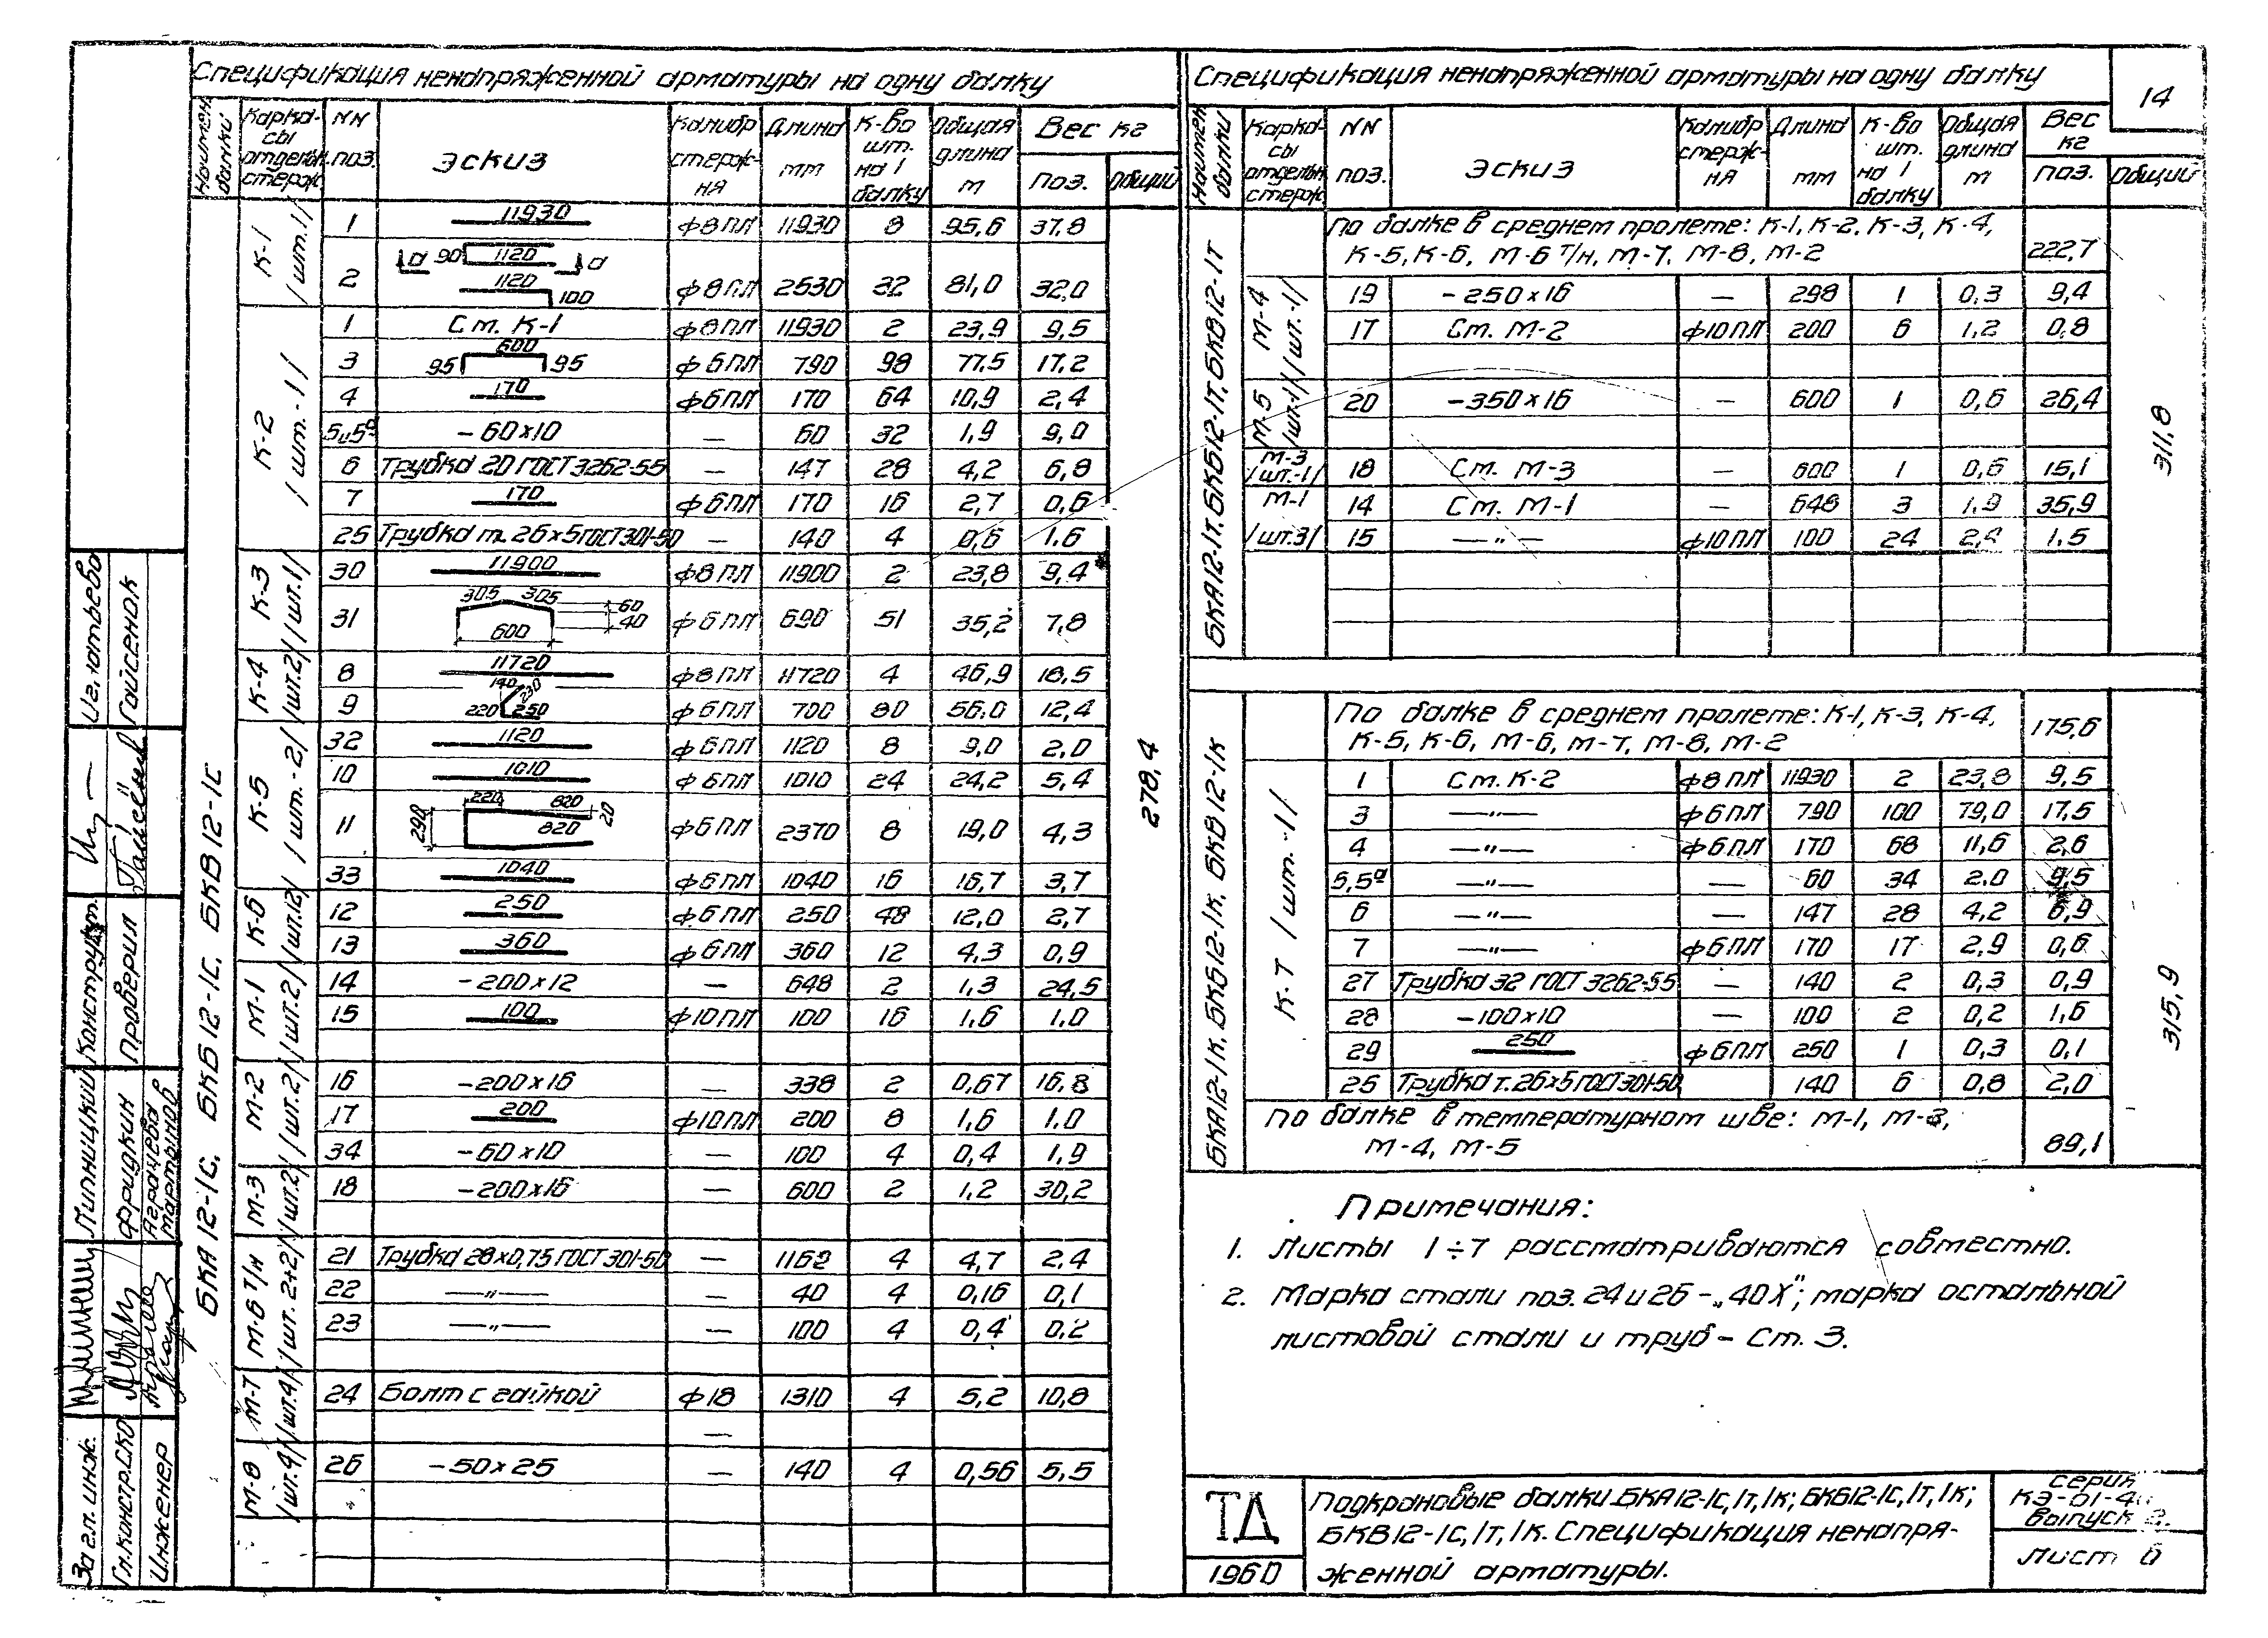 14
Спецификация ненапряженной арматуры на одну балку
Наимен. балки | Каркасы отдельн. стерж. | NN поз. | Эскиз | Калибр стержня | Длина мм | К-во шт. на 1 балку | Общая длина м | Вес кг поз. | Общий
БКА12-1с, БКБ12-1с, БКВ12-1с
К-1 /шт.1/
1 11930 ф8ПЛ 11930 8 95,6 37,8
2 а 90 1120 а 1120 100 ф8ПЛ 2530 32 81,0 32,0
К-2 /шт.-1/
1 См. К-1 ф8ПЛ 11930 2 23,9 9,5
3 95 600 95 ф6ПЛ 790 98 77,5 17,2
4 170 ф6ПЛ 170 64 10,9 2,4
5и5а -60×10 — 60 32 1,9 9,0
6 Трубка 20 ГОСТ 3262-55 — 147 28 4,2 6,8
7 170 ф6ПЛ 170 16 2,7 0,6
25 Трубка т. 26×5 ГОСТ 301-50 — 140 4 0,6 1,6
К-3 /шт.1/
30 11900 ф8ПЛ 11900 2 23,8 9,4
31 305 305 60 40 600 ф6ПЛ 690 51 35,2 7,8
К-4 /шт.2/
8 11720 ф8ПЛ 11720 4 46,9 18,5
9 140 230 220 250 ф6ПЛ 700 80 56,0 12,4
К-5 /шт.-2/
32 1120 ф6ПЛ 1120 8 9,0 2,0
10 1010 ф6ПЛ 1010 24 24,2 5,4
11 290 220 820 20 820 ф6ПЛ 2370 8 19,0 4,3
33 1040 ф6ПЛ 1040 16 16,7 3,7
К-6 /шт.12/
12 250 ф6ПЛ 250 48 12,0 2,7
13 360 ф6ПЛ 360 12 4,3 0,9
М-1 /шт.2/
14 -200×12 — 648 2 1,3 24,5
15 100 ф10ПЛ 100 16 1,6 1,0
М-2 /шт.2/
16 -200×16 — 338 2 0,67 16,8
17 200 ф10ПЛ 200 8 1,6 1,0
34 -60×10 — 100 4 0,4 1,9
М-3 /шт.2/
18 -200×16 — 600 2 1,2 30,2
М-6 т/н /шт. 2+2/
21 Трубка 28×0,75 ГОСТ 301-50 — 1168 4 4,7 2,4
22 —"— — 40 4 0,16 0,1
23 —"— — 100 4 0,4 0,2
М-7 /шт.4/
24 Болт с гайкой ф18 1310 4 5,2 10,8
—
М-8 /шт.4/
26 -50×25 — 140 4 0,56 5,5
278,4
Спецификация ненапряженной арматуры на одну балку
Наимен. балки | Каркасы отдельн. стерж. | NN поз. | Эскиз | Калибр стержня | Длина мм | К-во шт. на 1 балку | Общая длина м | Вес кг поз. | Общий
БКА12-1т, БКБ12-1т, БКВ12-1т
По балке в среднем пролете: К-1, К-2, К-3, К-4,
К-5, К-6, М-6 т/н, М-7, М-8, М-2 222,7
М-4 /шт.-1/
19 -250×16 — 298 1 0,3 9,4
17 См. М-2 ф10ПЛ 200 6 1,2 0,8
М-5 /шт.-1/
20 -350×16 — 600 1 0,6 26,4
М-3 /шт.-1/
18 См. М-3 — 600 1 0,6 15,1
М-1 /шт.3/
14 См. М-1 — 648 3 1,9 35,9
15 —"— ф10ПЛ 100 24 2,4 1,5
311,8
БКА12-1к, БКБ12-1к, БКВ12-1к
По балке в среднем пролете: К-1, К-3, К-4,
К-5, К-6, М-6, М-7, М-8, М-2 175,6
К-7 /шт.-1/
1 См. К-2 ф8ПЛ 11930 2 23,8 9,5
3 —"— ф6ПЛ 790 100 79,0 17,5
4 —"— ф6ПЛ 170 68 11,6 2,6
5,5а —"— — 60 34 2,0 9,5
6 —"— — 147 28 4,2 6,9
7 —"— ф6ПЛ 170 17 2,9 0,6
27 Трубка 32 ГОСТ 3262-55 — 140 2 0,3 0,9
28 -100×10 — 100 2 0,2 1,6
29 250 ф6ПЛ 250 1 0,3 0,1
25 Трубка т. 26×5 ГОСТ 301-50 140 6 0,8 2,0
По балке в температурном шве: М-1, М-3,
М-4, М-5 89,1
315,9
Примечания:
1. Листы 1÷7 рассматриваются совместно.
2. Марка стали поз. 24 и 26 - „40Х"; марка остальной
листовой стали и труб - Ст. 3.
ТД
1960
Подкрановые балки БКА12-1с,1т,1к; БКБ12-1с,1т,1к;
БКВ12-1с,1т,1к. Спецификация ненапря-
женной арматуры.
серия
КЭ-01-4
выпуск 2.
Лист 6
За гл. инж. Липницкий
Гл.констр.СКО Фридкин
Инженер Аграчева Мартынов
Конструкт.
Проверил Гайсенок